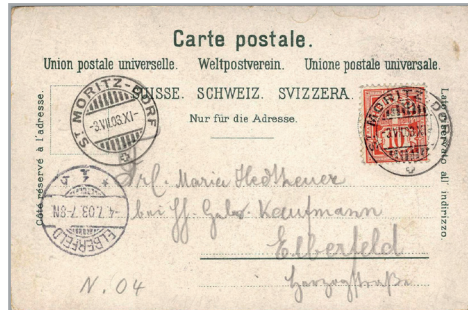 Carte postale.
Union postale universelle. Weltpostverein. Unione postale universale.
SUISSE. SCHWEIZ. SVIZZERA.
Nur für die Adresse.
Côté réservé à l'adresse.
Lato riservato all'indirizzo.
ST MORITZ-DORF
-3.VII.03.XI-
10
ST MORITZ-DORF
-3.VII.03.XI-
* 1 r
-4.7.03.7-8N.
ELBERFELD
Frl. Maria
bei
Elberfeld
Herzogstraße
N. 04